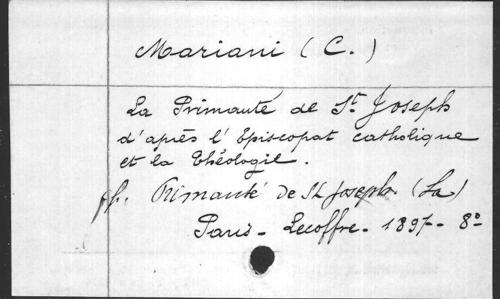 Mariani (C.)
La Primauté de St Joseph
d'après l'Episcopat catholique
et la théologie.
Primauté de St Joseph (La)
Paris - Lecoffre - 1897 - 8°